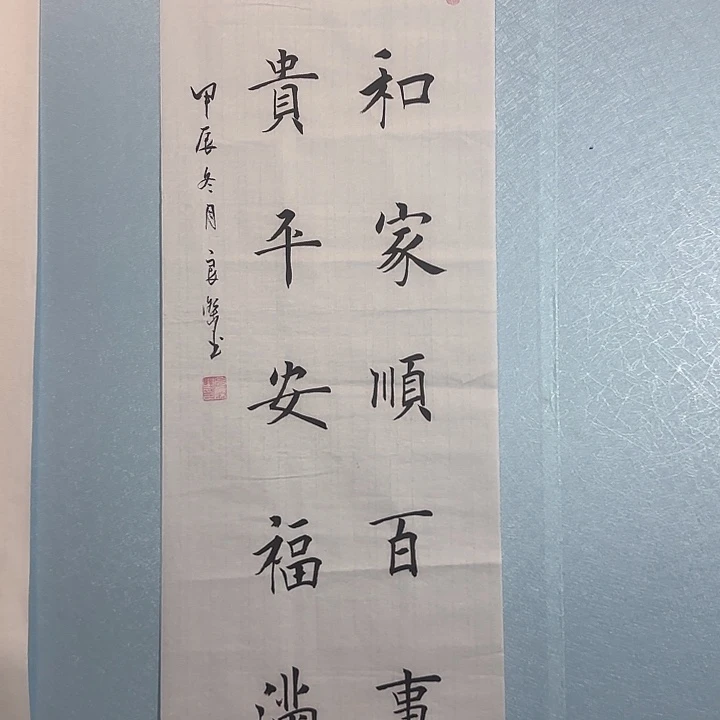 和家順百事
貴平安福滿
甲辰冬月良擎书